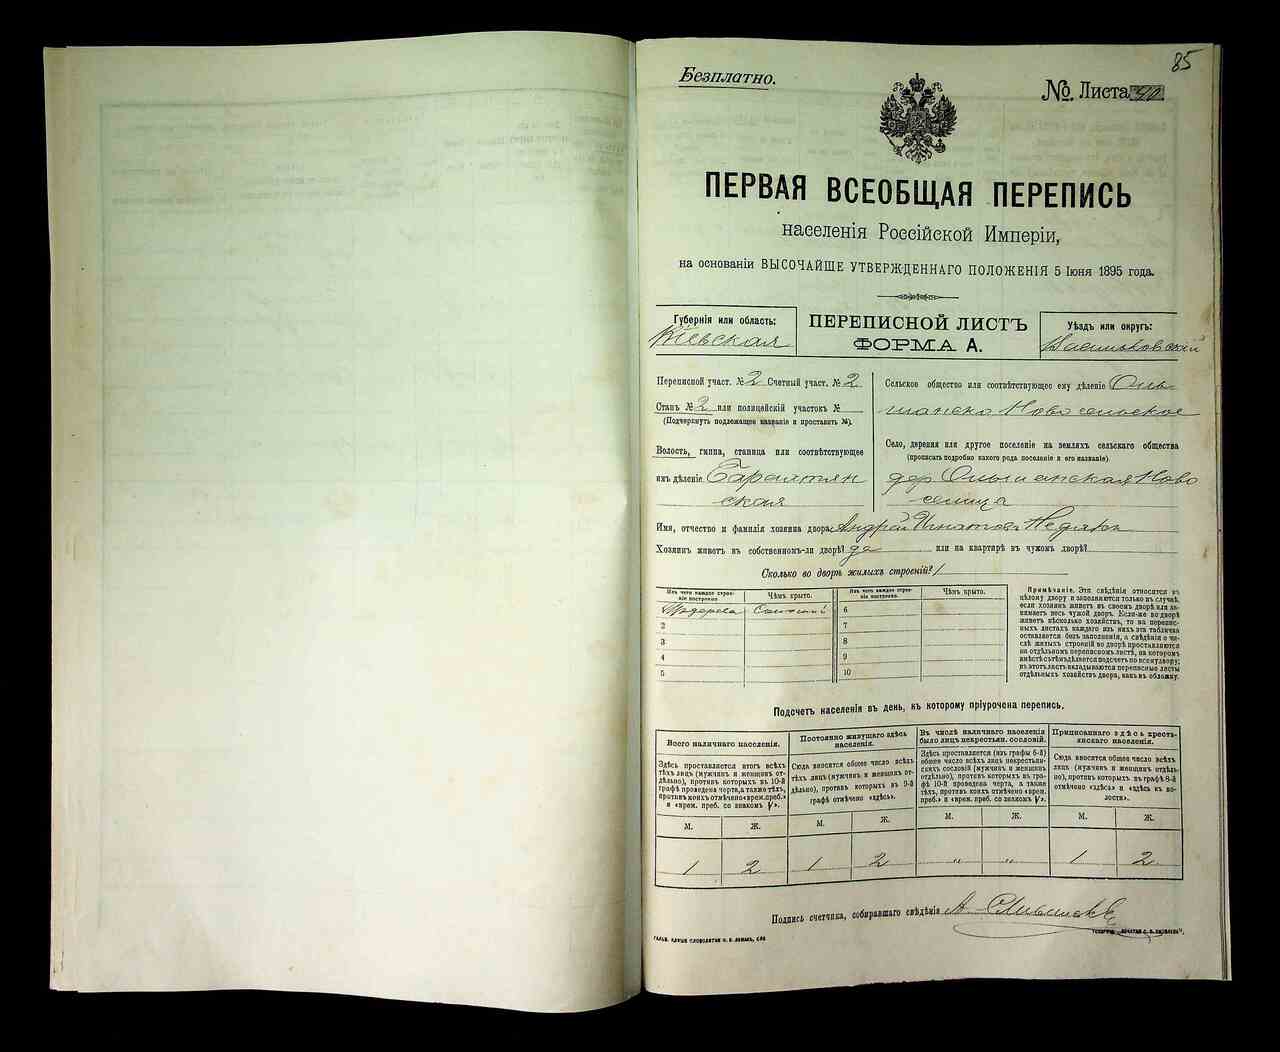 85
Безплатно.
№. Листа 40
ПЕРВАЯ ВСЕОБЩАЯ ПЕРЕПИСЬ
населенія Россійской Имперіи,
на основаніи ВЫСОЧАЙШЕ УТВЕРЖДЕННАГО ПОЛОЖЕНІЯ 5 Іюня 1895 года.
Губернія или область:
Кіевская
ПЕРЕПИСНОЙ ЛИСТЪ
ФОРМА А.
Уѣздъ или округъ:
Васильковскій
Переписной участ. № 2 Счетный участ. № 2
Станъ № 2 или полицейскій участокъ №
(Подчеркнуть подлежащее названіе и проставить №).
Волость, гмина, станица или соотвѣтствующее
имъ дѣленіе
ская
Сельское общество или соотвѣтствующее ему дѣленіе Оль
шанско Новосельское
Село, деревня или другое поселеніе на земляхъ сельскаго общества
(прописать подробно какого рода поселеніе и его названіе)
дер Ольшанская Ново
селица
Имя, отчество и фамилія хозяина двора: Андрей Игнатовъ
Хозяинъ живетъ въ собственномъ-ли дворѣ? да или на квартирѣ въ чужомъ дворѣ?
Сколько во дворѣ жилыхъ строеній? 1
Изъ чего каждое строе-
ніе построено
Чѣмъ крыто.
Изъ чего каждое строе-
ніе построено.
Чѣмъ крыто.
1 Соломой 6
2 7
3 8
4 9
5 10
Примѣчаніе. Эти свѣдѣнія относятся къ
цѣлому двору и заполняются только въ случаѣ,
если хозяинъ живетъ въ своемъ дворѣ или за-
нимаетъ весь чужой дворъ. Если-же во дворѣ
живетъ нѣсколько хозяйствъ, то на перепис-
ныхъ листахъ каждаго изъ нихъ эта табличка
оставляется безъ заполненія, а свѣдѣнія о чи-
слѣ жилыхъ строеній во дворѣ проставляются
на отдѣльномъ переписномъ листѣ, на которомъ
вмѣстѣ съ тѣмъ дѣлается подсчетъ по всему двору;
въ этотъ листъ вкладываются переписные листы
отдѣльныхъ хозяйствъ двора, какъ въ обложку.
Подсчетъ населенія въ день, къ которому пріурочена перепись.
Всего наличнаго населенія.
Здѣсь проставляется итогъ всѣхъ
тѣхъ лицъ (мужчинъ и женщинъ от-
дѣльно), противъ которыхъ въ 10-й
графѣ проведена черта, а также тѣхъ,
противъ коихъ отмѣчено «врем. преб.»
и «врем. преб. со знакомъ V».
Постоянно живущаго здѣсь
населенія.
Сюда вносятся общее число всѣхъ
тѣхъ лицъ (мужчинъ и женщинъ от-
дѣльно), противъ которыхъ въ 9-й
графѣ отмѣчено «здѣсь».
Въ числѣ наличнаго населенія
было лицъ некрестьян. сословій.
Здѣсь проставляется (изъ графы 6-й)
общее число всѣхъ лицъ некрестьян-
скихъ сословій (мужчинъ и женщинъ
отдѣльно), противъ которыхъ въ гра-
фѣ 10-й проведена черта, а также
тѣхъ, противъ коихъ отмѣчено «врем.
преб.» и «врем. преб. со знакомъ V».
Приписаннаго здѣсь кресть-
янскаго населенія.
Сюда вносятъ общее число всѣхъ
лицъ (мужчинъ и женщинъ отдѣль-
но), противъ которыхъ въ графѣ 8-й
отмѣчено «здѣсь» и «здѣсь къ во-
лости».
М. Ж. М. Ж. М. Ж. М. Ж.
1 2 1 2 " " 1 2
Подпись счетчика, собиравшаго свѣдѣнія А.